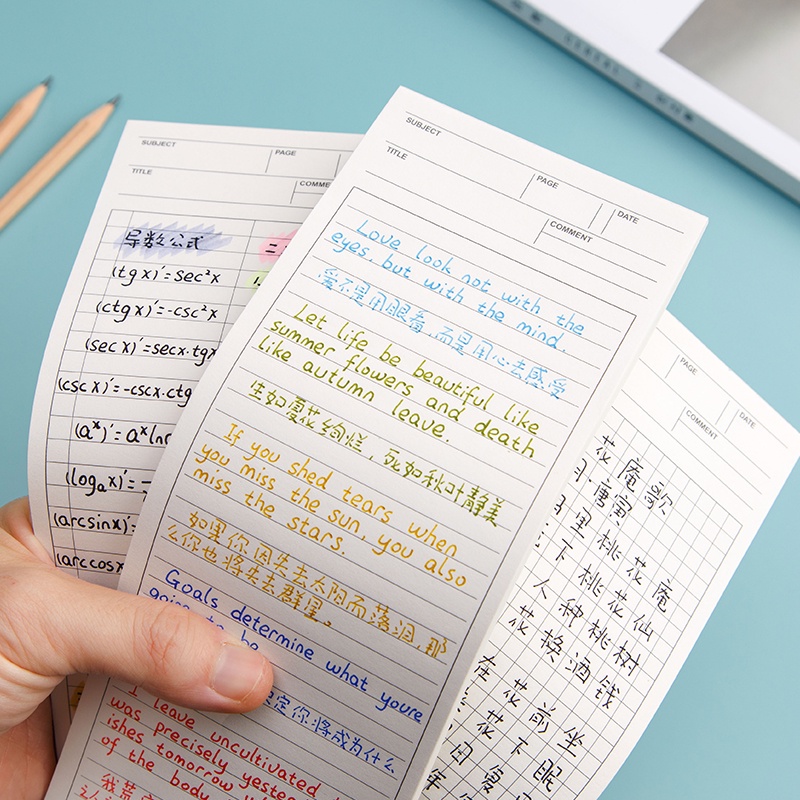 SUBJECT
PAGE
TITLE
COMME
导数公式
(tg x)'=sec²x
(ctg x)'=-csc²x
(sec x)'=secx·tgx
(csc x)'=-cscx·ctg
(aˣ)'=aˣln
(logₐx)'=
(arcsinx)'=
(arccosx
二
SUBJECT
PAGE
DATE
TITLE
COMMENT
Love look not with the
eyes, but with the mind.
爱不是用眼看,而是用心去感受
Let life be beautiful like
summer flowers and death
like autumn leave.
生如夏花绚烂,死如秋叶静美
If you shed tears when
you miss the sun, you also
miss the stars.
如果你因失去太阳而落泪,那
么你也将失去群星。
Goals determine what youre
going to be
决定你将成为什么
I leave uncultivated
was precisely yester
ishes tomorrow
of the body
我荒
PAGE
DATE
COMMENT
花庵歌
唐寅
里桃花庵
下桃花仙
人种桃树
花换酒钱
在花前坐
花下眠
日复
年